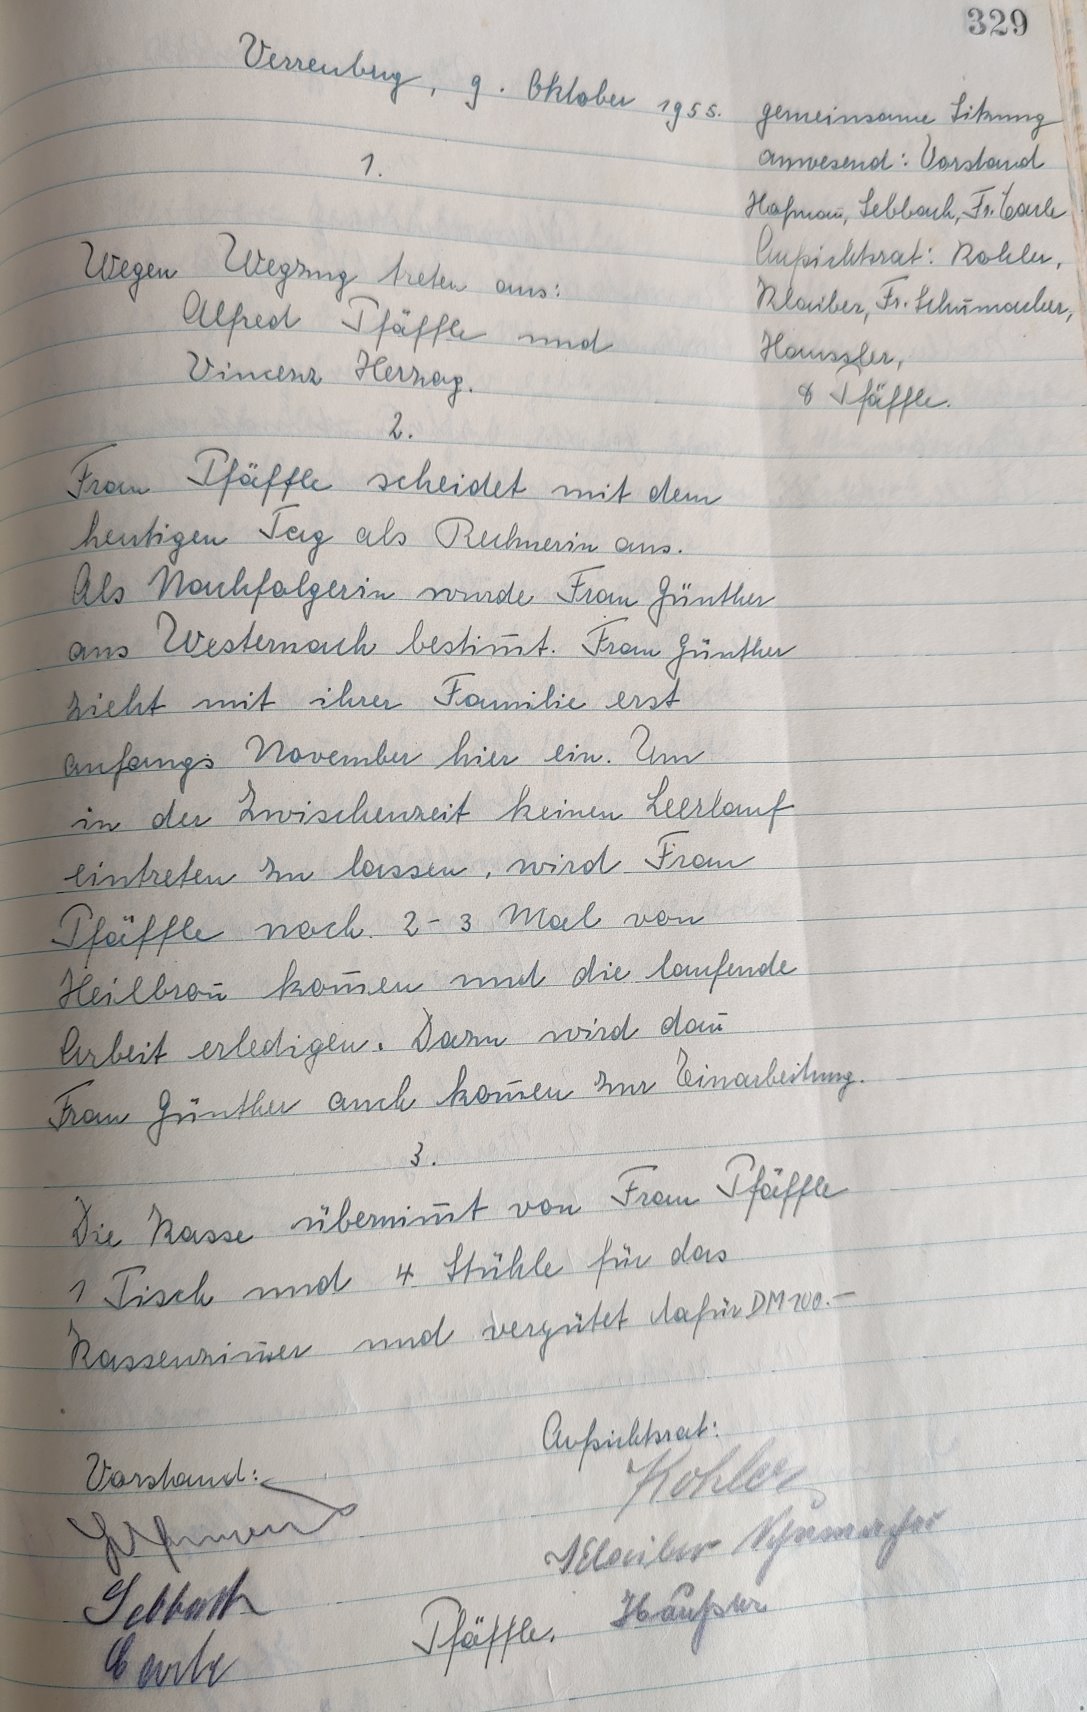 329
Verrenbrg, 9. Oktober 1955.
gemeinsame Sitzung
anwesend: Vorstand
Hofman̄, Sebbach, Fr. Carle
Aufsichtsrat: Kohler,
Klaiber, Fr. Schumacher,
Haussler,
& Pfäffle.
1.
Wegen Wegzug treten aus:
Alfred Pfäffle und
Vincenz Herzog.
2.
Frau Pfäffle scheidet mit dem
heutigen Tag als Rechnerin aus.
Als Nachfolgerin wurde Frau Günther
aus Westernach bestim̄t. Frau Günther
zieht mit ihrer Familie erst
anfangs November hier ein. Um
in der Zwischenzeit keinen Leerlauf
eintreten zu lassen, wird Frau
Pfäffle noch 2-3 Mal von
Heilbron̄ kom̄en und die laufende
Arbeit erledigen. Dazu wird dan̄
Frau Günther auch kom̄en zur Einarbeitung.
3.
Die Kasse übernim̄t von Frau Pfäffle
1 Tisch und 4 Stühle für das
Kassenzim̄er und vergütet dafür DM 100.-
Vorstand:
Aufsichtsrat:
Kohler
Klaiber Schumacher
Sebbach
Häußler
Carle
Pfäffle.